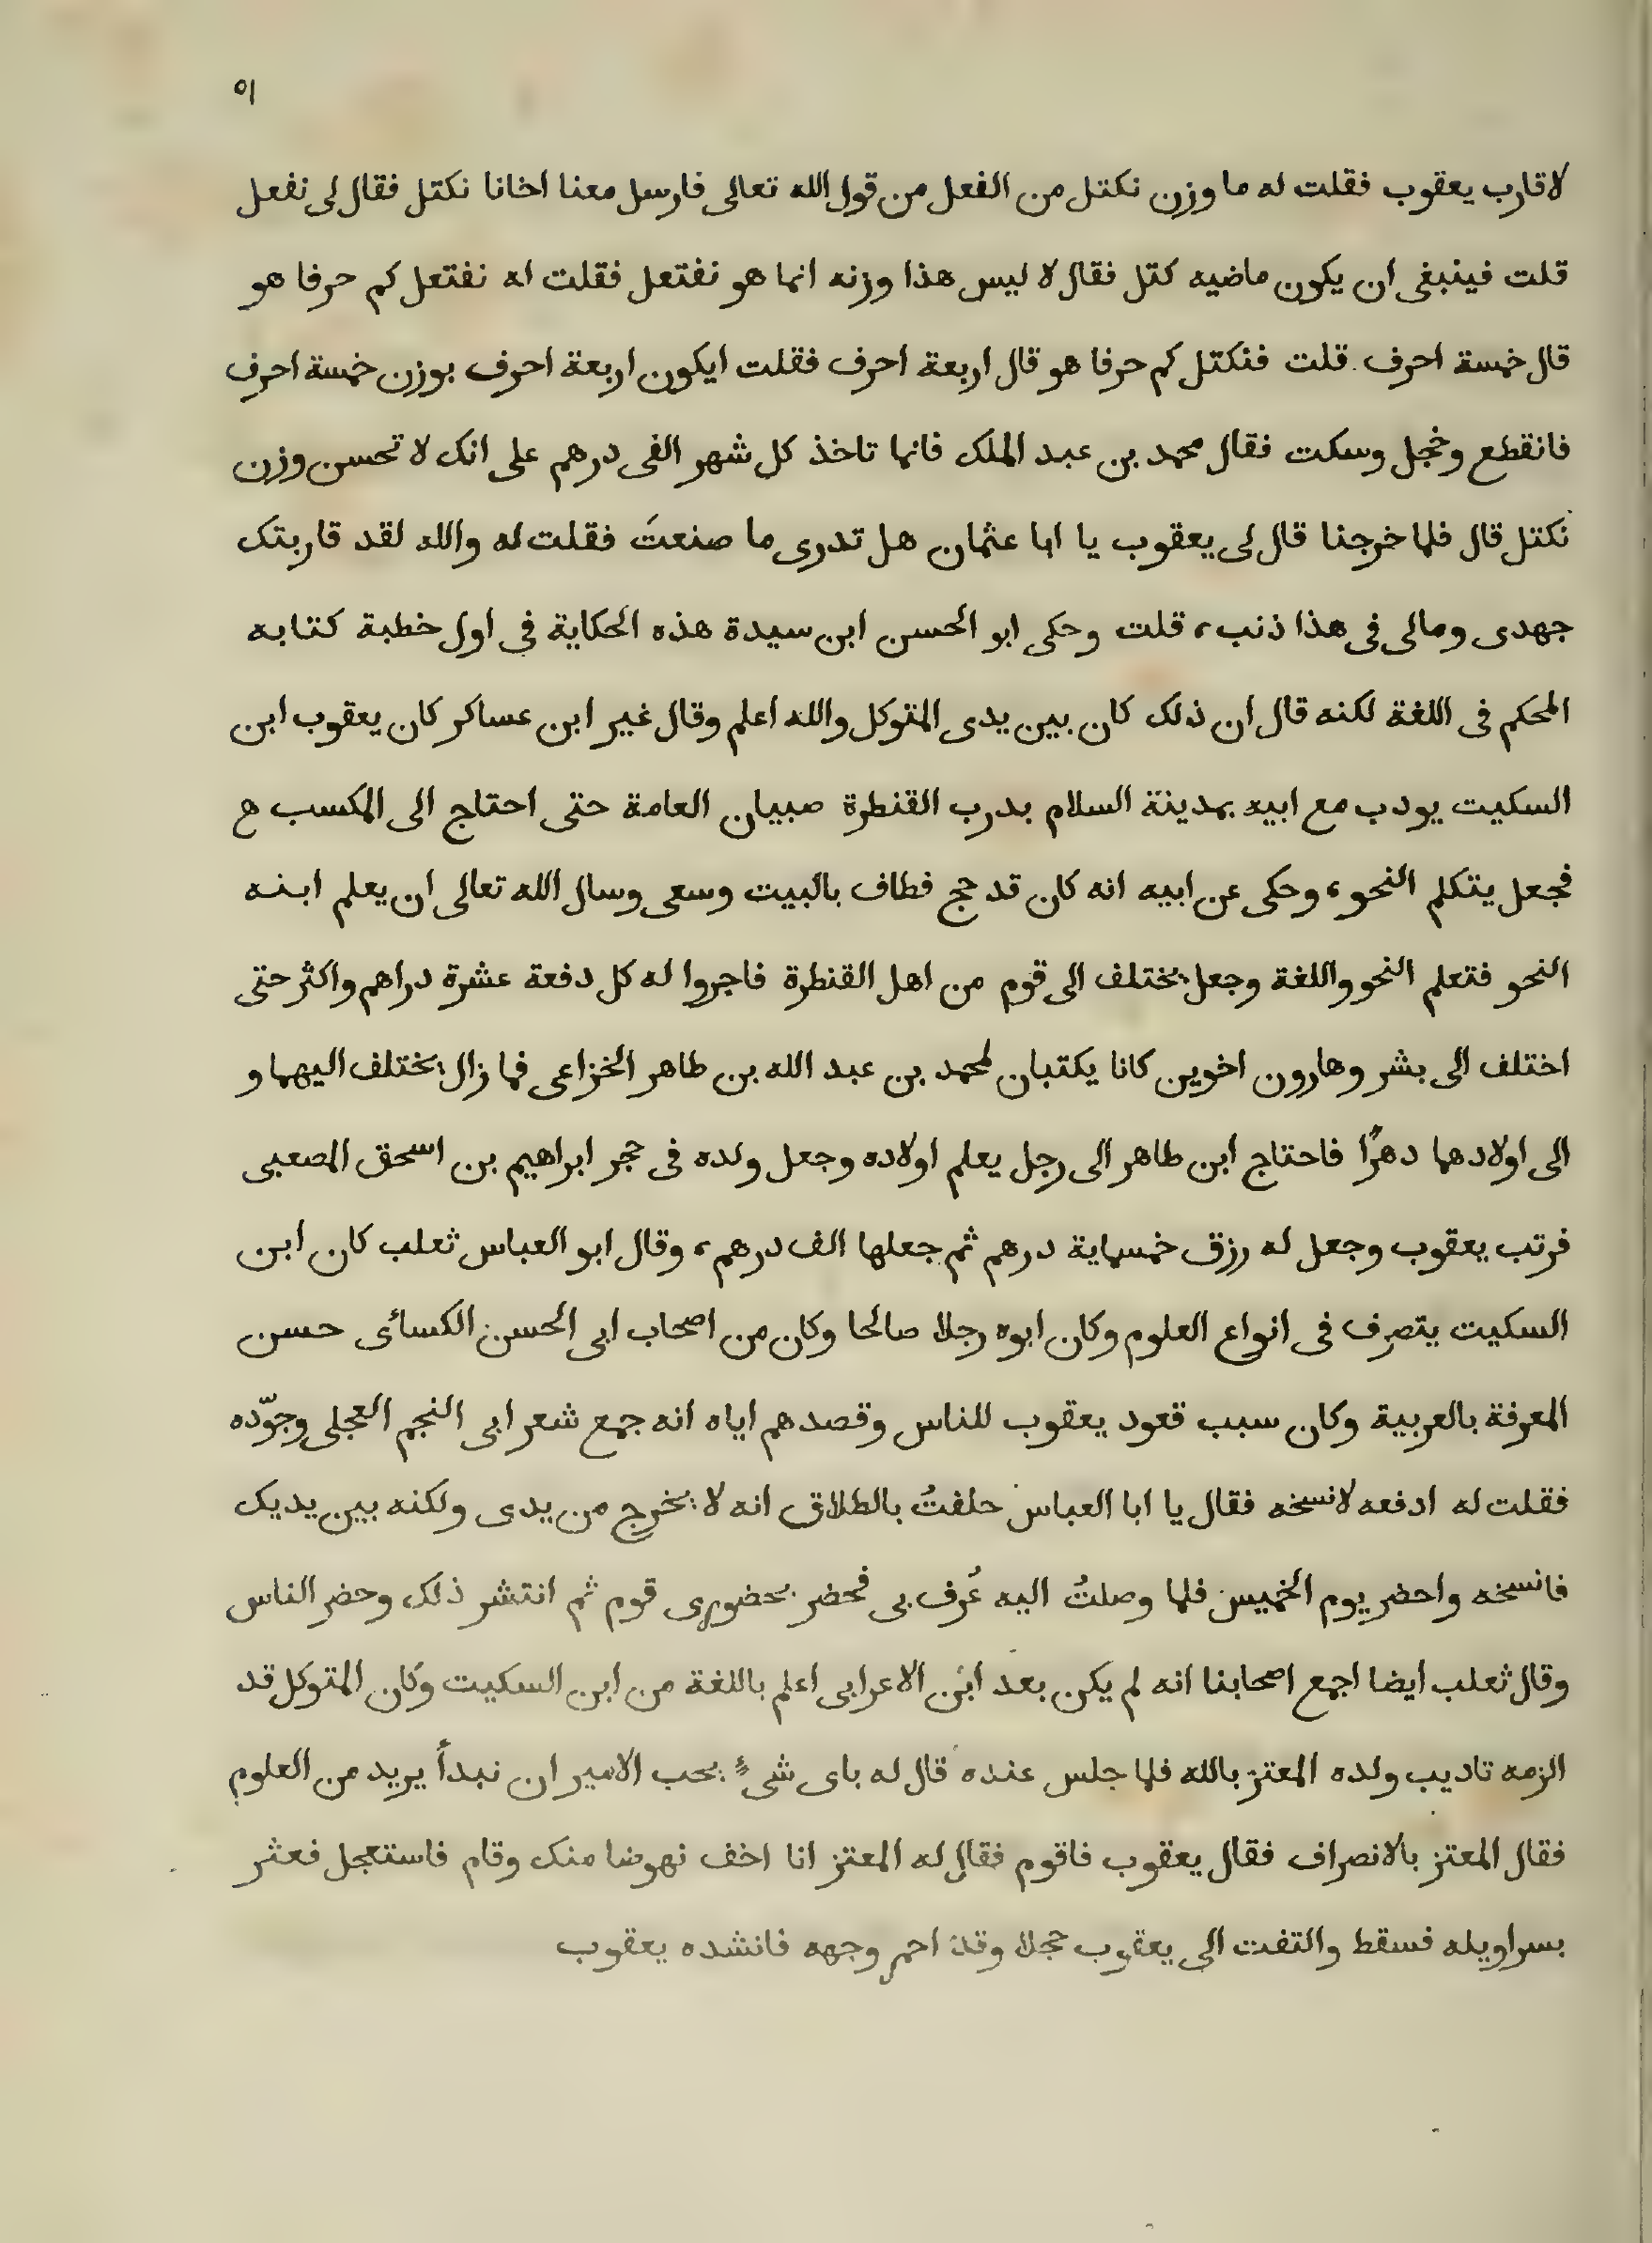 ٥١
لاقارب يعقوب فقلت له ما وزن نكتل من الفعل من قول الله تعالى فارسل معنا اخانا نكتل فقال لى نفعل
قلت فينبغى ان يكون ماضيه كتل فقال لا ليس هذا وزنه انما هو نفتعل فقلت له نفتعل كم حرفا هو
قال خمسة احرف قلت فنكتل كم حرفا هو قال اربعة احرف فقلت ايكون اربعة احرف بوزن خمسة احرف
فانقطع وخجل وسكت فقال محمد بن عبد الملك فانما تاخذ كل شهر الفى درهم على انك لا تحسن وزن
نكتل قال فلما خرجنا قال لى يعقوب يا ابا عثمان هل تدرى ما صنعتَ فقلت له والله لقد قاربتك
جهدى ومالى فى هذا ذنب، قلت وحكى ابو الحسن ابن سيدة هذه الحكاية فى اول خطبة كتابه
المحكم فى اللغة لكنه قال ان ذلك كان بين يدى المتوكل والله اعلم وقال غير ابن عساكر كان يعقوب ابن
السكيت يودب مع ابيه بمدينة السلام بدرب القنطرة صبيان العامة حتى احتاج الى المكسب ح
فجعل يتكلم النحو، وحكى عن ابيه انه كان قد حج فطاف بالبيت وسعى وسال الله تعالى ان يعلم ابنه
النحو فتعلم النحو واللغة وجعل يختلف الى قوم من اهل القنطرة فاجروا له كل دفعة عشرة دراهم واكثر حتى
اختلف الى بشر وهارون اخوين كانا يكتبان لمحمد بن عبد الله بن طاهر الخزاعى فما زال يختلف اليهما و
الى اولادهما دهرًا فاحتاج ابن طاهر الى رجل يعلم اولاده وجعل ولده فى حجر ابراهيم بن اسحق المصعبى
فرتب يعقوب وجعل له رزق خمسماية درهم ثم جعلها الف درهم، وقال ابو العباس ثعلب كان ابن
السكيت يتصرف فى انواع العلوم وكان ابوه رجلا صالحا وكان من اصحاب ابى الحسن الكسائى حسن
المعرفة بالعربية وكان سبب قعود يعقوب للناس وقصدهم اياه انه جمع شعر ابى النجم العجلى وجوّده
فقلت له ادفعه لانسخه فقال يا ابا العباس حلفتُ بالطلاق انه لا يخرج من يدى ولكنه بين يديك
فانسخه واحضر يوم الخميس فلما وصلتُ اليه عُرف بى فحضر بحضورى قوم ثم انتشر ذلك وحضر الناس
وقال ثعلب ايضا اجمع اصحابنا انه لم يكن بعد ابن الاعرابى اعلم باللغة من ابن السكيت وكان المتوكل قد
الزمه تاديب ولده المعتز بالله فلما جلس عنده قال له باى شىءٍ يحب الامير ان نبدأ يريد من العلوم
فقال المعتز بالانصراف فقال يعقوب فاقوم فقال له المعتز انا اخف نهوضا منك وقام فاستعجل فعثر
بسراويله فسقط والتفت الى يعقوب خجلا وقد احمر وجهه فانشده يعقوب